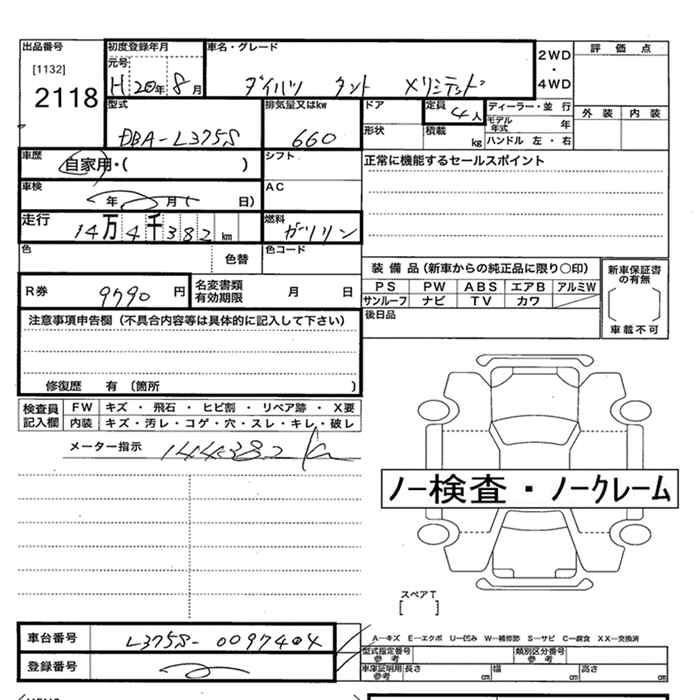 出品番号 初度登録年月 車名・グレード 2WD 評価点
元号
[1132] H 20年 8月 ダイハツ タント ・
2118 4WD
型式 排気量又はkw ドア 定員 4人 ディーラー・並行 外装 内装
DBA-L375S 660 形状 積載 kg モデル年式 年
ハンドル 左・右
車歴 自家用・( ) シフト 正常に機能するセールスポイント
車検 年 月 日) AC
走行 14万4千382km 燃料 ガソリン
色 色替 色コード
装備品(新車からの純正品に限り○印) 新車保証書の有無
R券 9790円 名変書類有効期限 月 日 PS PW ABS エアB アルミW
サンルーフ ナビ TV カワ
後日品 車載不可
注意事項申告欄(不具合内容等は具体的に記入して下さい)
修復歴 有 (箇所 )
検査員記入欄 FW キズ・飛石・ヒビ割・リペア跡・X要
内装 キズ・汚レ・コゲ・穴・スレ・キレ・破レ
メーター指示 144382km
ノー検査・ノークレーム
スペアT
[ ]
車台番号 L375S-0097404 A−キズ E−エクボ U−凹み W−補修跡 S−サビ C−腐食 XX−交換済
登録番号 型式指定番号参考 類別区分番号参考
車庫証明用参考 長さ cm 幅 cm 高さ cm